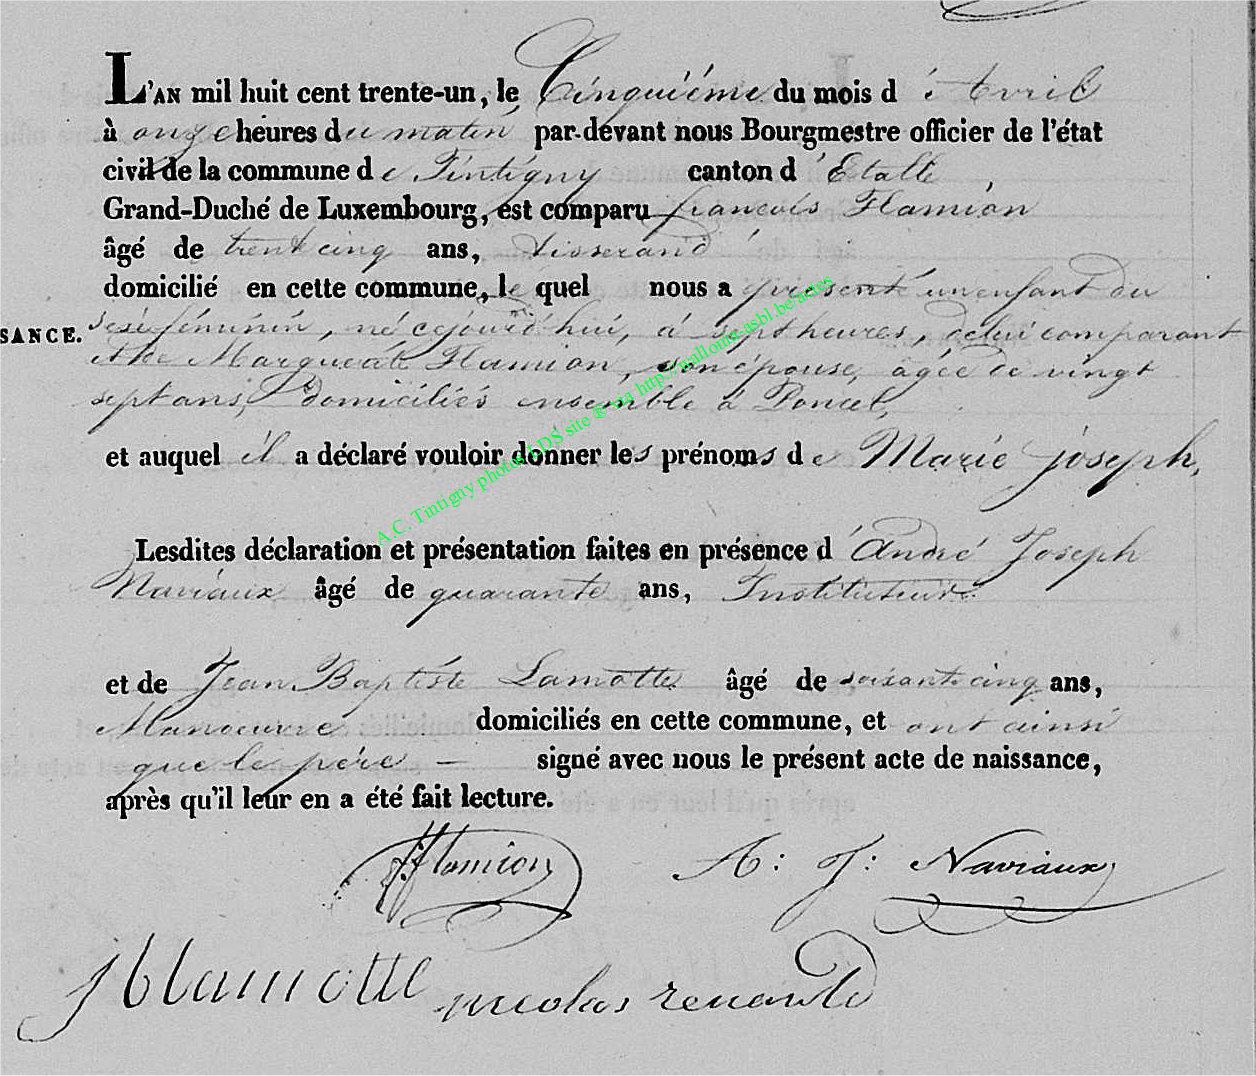 L'AN mil huit cent trente-un, le Cinquiéme du mois d'Avril
à onze heures du matin par-devant nous Bourgmestre officier de l'état
civil de la commune de Tintigny canton d'Etalle,
Grand-Duché de Luxembourg, est comparu françois Flamion
âgé de trente cinq ans, tisserand
domicilié en cette commune, le quel nous a présenté un enfant du
SANCE. sexe féminin, né cejourd'hui, à sept heures, de lui comparant
et de Marguerite Flamion, son épouse, âgée de vingt
sept ans, domiciliés ensemble à Poncel,
et auquel il a déclaré vouloir donner les prénoms de Marie joseph,
A.C. Tintigny photos LDS site via http://wallonia-asbl.be/actes
Lesdites déclaration et présentation faites en présence d'André Joseph
Naviaux âgé de quarante ans, Instituteur
et de Jean Baptiste Lamotte âgé de soixante cinq ans,
Manoeuvre domiciliés en cette commune, et ont ainsi
que le père – signé avec nous le présent acte de naissance,
après qu'il leur en a été fait lecture.
f flamion A: J: Naviaux
J b lamotte nicolas renauld